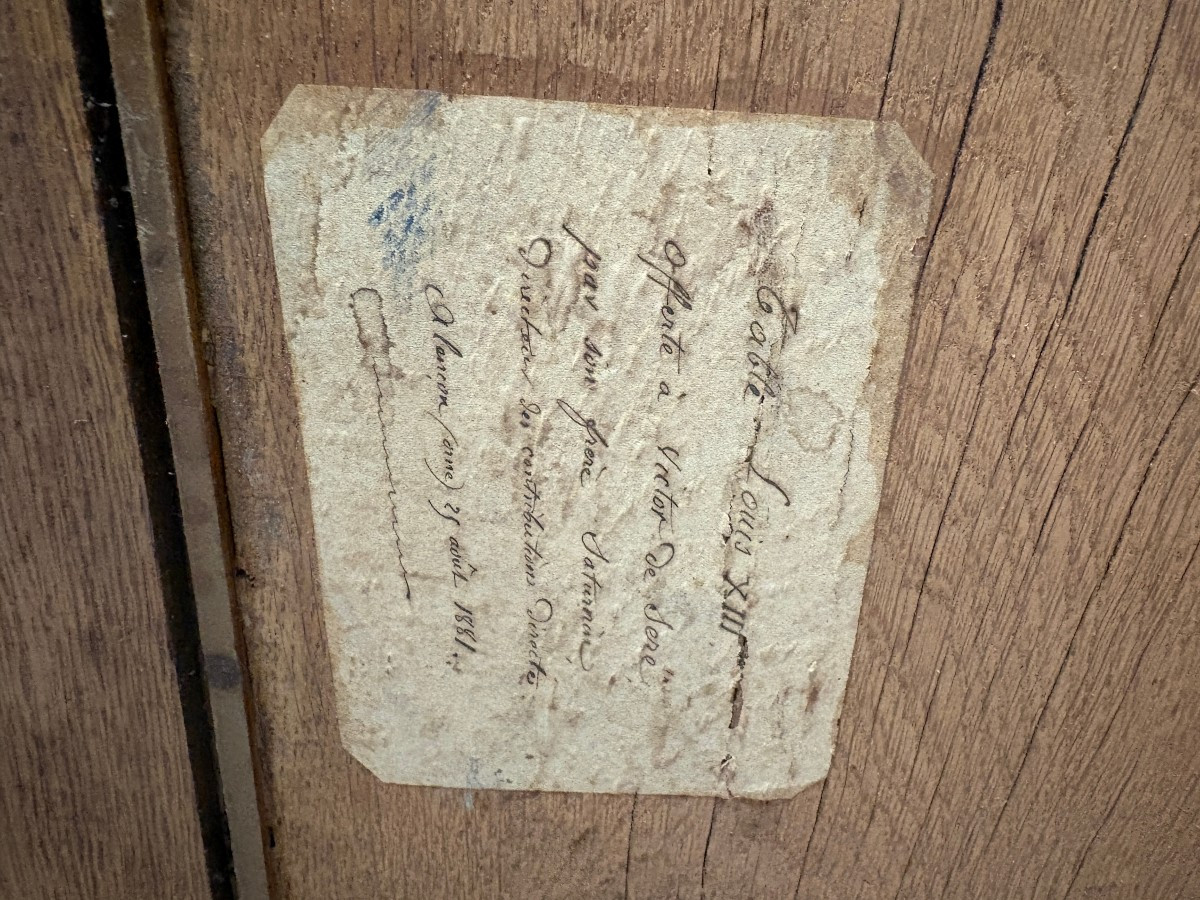 Table Louis XIII
offerte à Victor de Seré
par son frère Saturnin
Directeur des contributions Directes.
Alençon (orne) 25 août 1881.